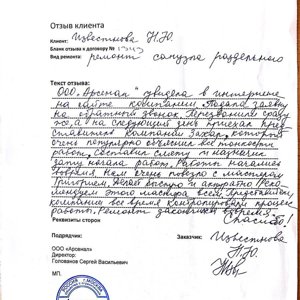 Отзыв клиента
Клиент: Известнова Н.Ю.
Бланк отзыва к договору №
Вид ремонта: ремонт санузла раздельного
Текст отзыва:
ООО "Арсенал" увидела в интернете
на сайте компании. Подала заявку
на обратный звонок. Перезвонили сразу
же, а на следующий день приехал пред
ставитель компании Захар, который
очень популярно объяснил все тонкости
работ, составил смету и назначил
дату начала работ. Работы начались
вовремя. Нам очень повезло с мастером
Григорием. Делал быстро и аккуратно. Реко
мендуем этого мастера всем. Представитель
компании все время контролировал процесс
работ. Ремонт закончили вовремя.
Спасибо!
Реквизиты сторон
Подрядчик: Заказчик: Известнова
ООО «Арсенал» Н.Ю.
Директор:
Голованов Сергей Васильевич
МП.